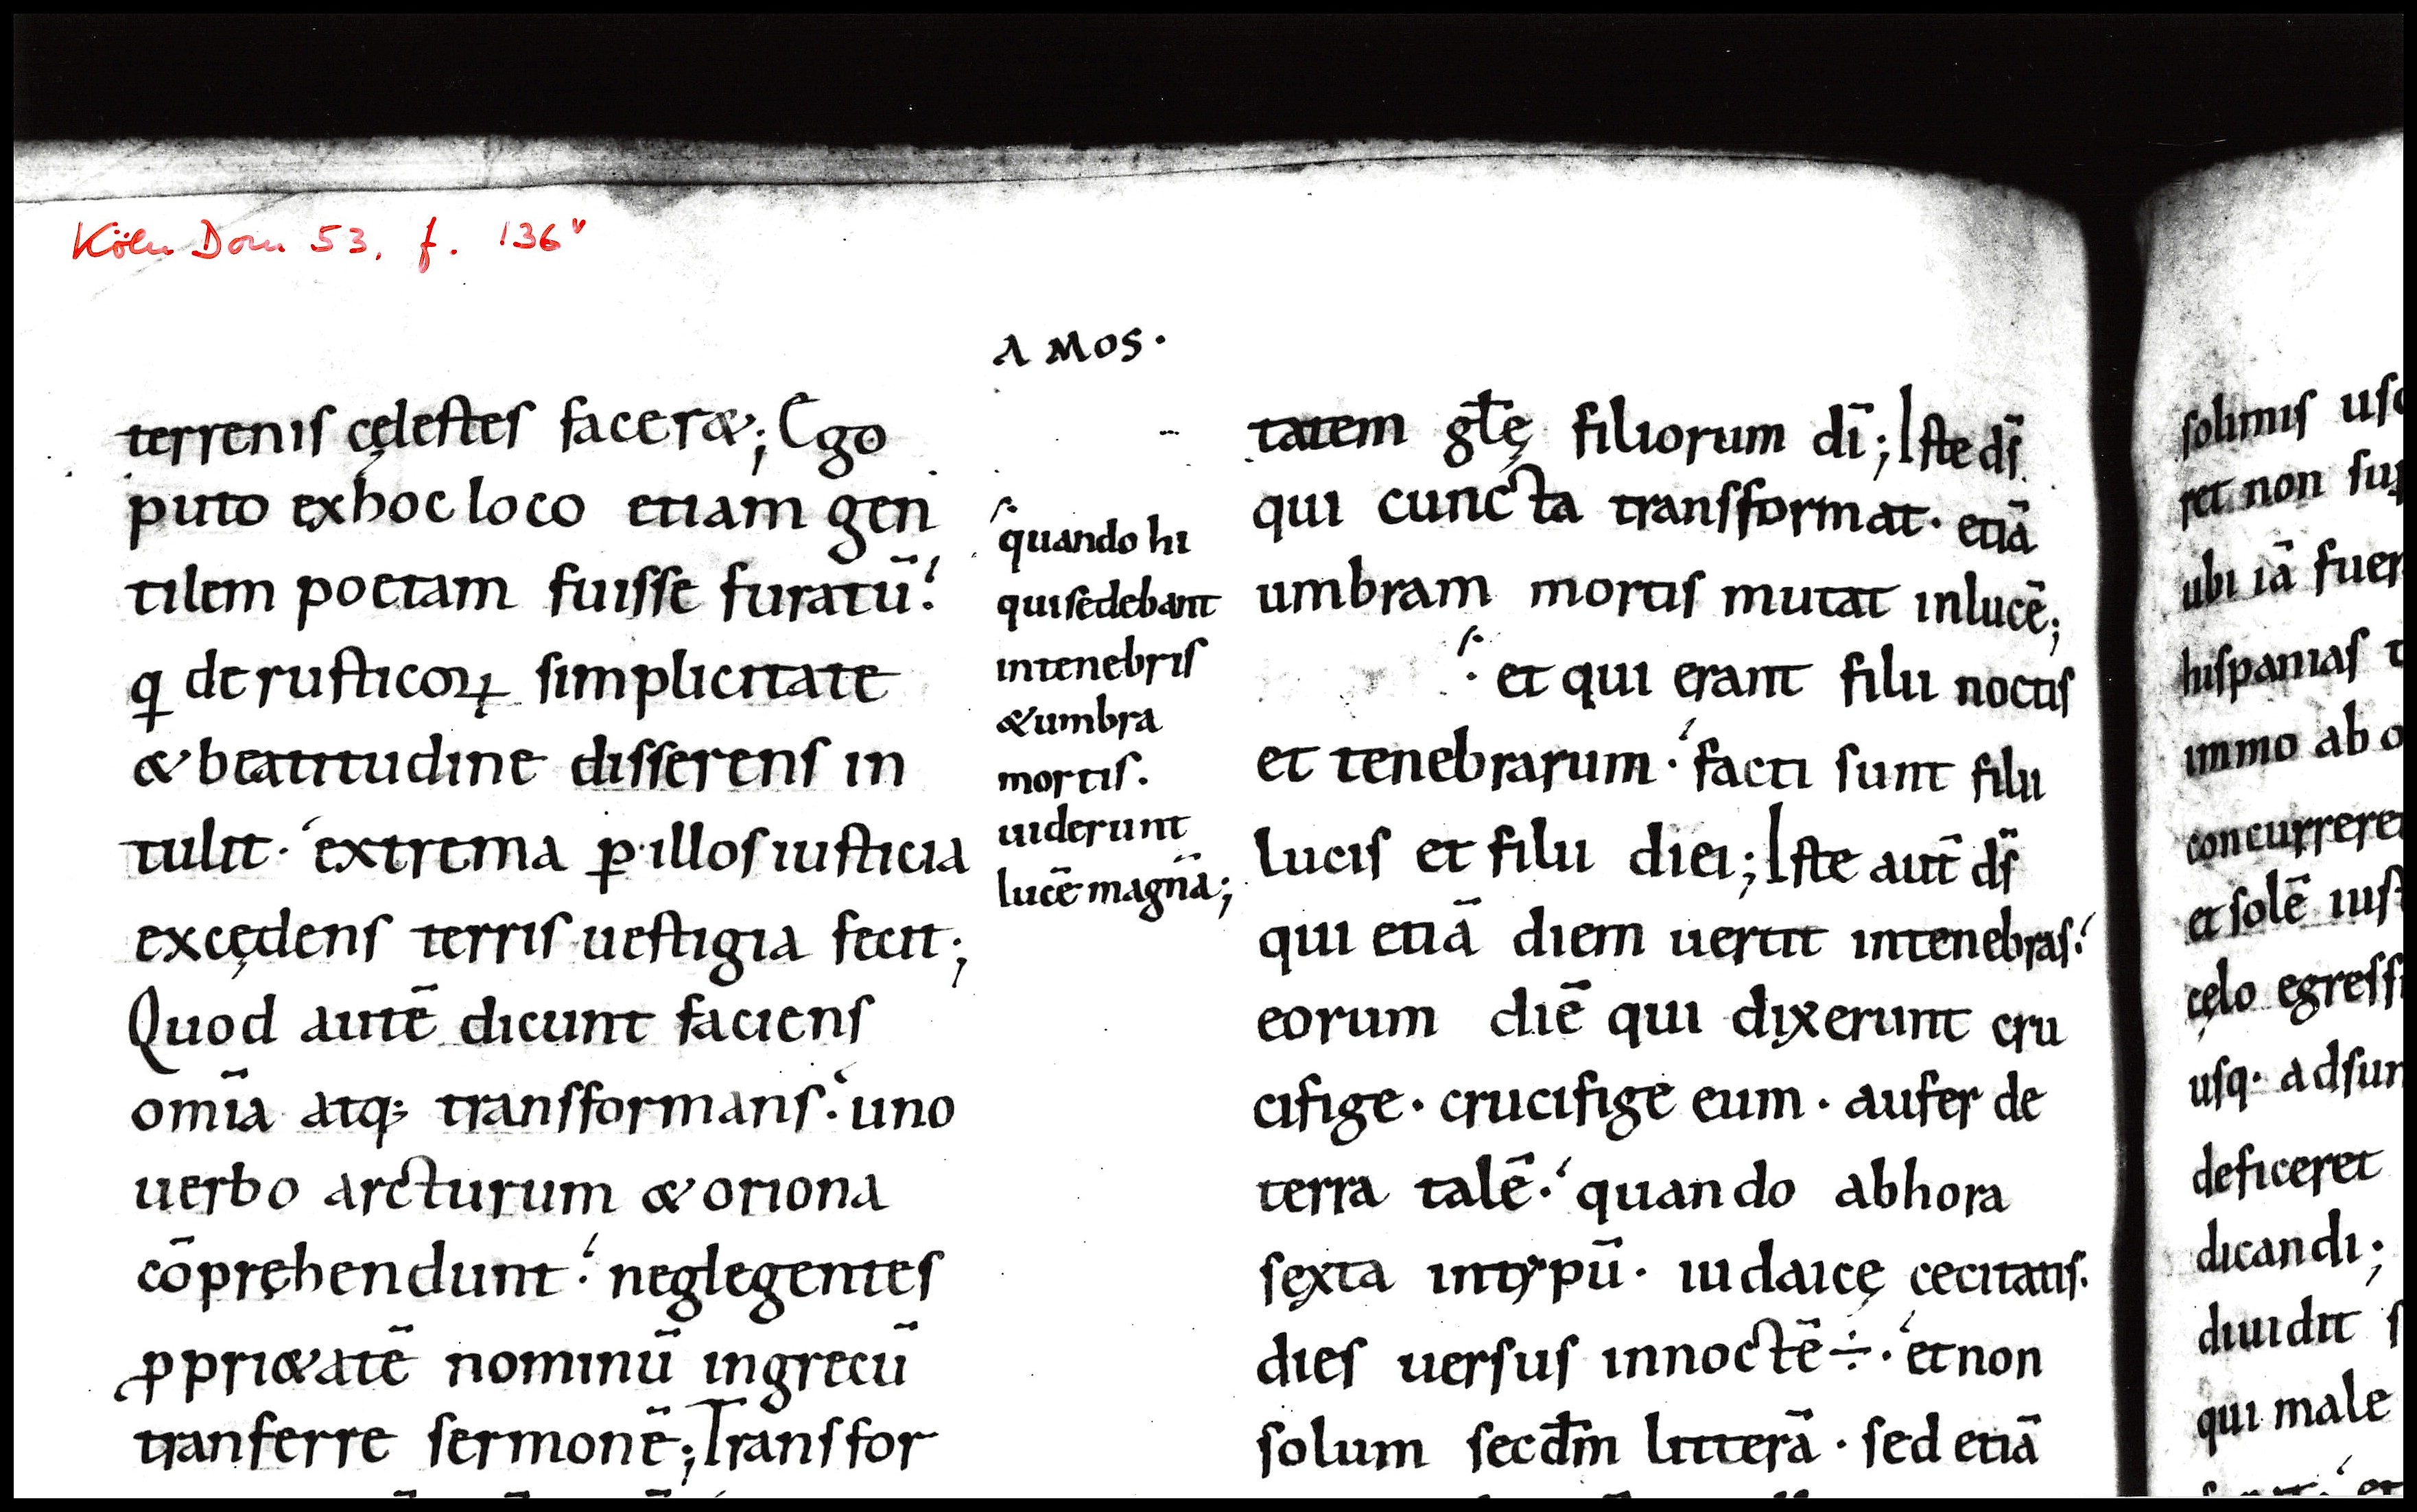 Köln Dom 53, f. 136ᵛ
AMOS·
terrenis cęlestes facer&; Ego
puto exhoc loco etiam gen
tilem poetam fuisse furatū·
q de rusticoꝝ simplicitate
& beatitudine disserens in
tulit· extrema ꝑ illos iusticia
excędens terris uestigia fecit;
Quod autē dicunt faciens
om̄ia atq; transformans· uno
uerbo arcturum & oriona
cōpręhendunt· neglegentes
ꝓpri&atē nominū ingrecū
tranferre sermonē; Transfor
quando hi
quisedebant
intenebris
&umbra
mortis·
uiderunt
lucē magnā;
tatem gl̄ę filiorum dī; Iste ds̄
qui cuncta transformat· etiā
umbram mortis mutat inlucē;
et qui erant filii noctis
et tenebrarum· facti sunt filii
lucis et filii diei; Iste aut̄ ds̄
qui etiā diem uertit intenebras·
eorum diē qui dixerunt cru
cifige· crucifige eum· aufer de
terra talē· quando abhora
sexta intypū· iudaicę cecitatis·
dies uersus innoctē ÷· et non
solum secd̄m litterā· sed etiā
solimis usq
ret non su
ubi iā fuer
hispanias t
immo ab o
concurrere
et solē iust
cęlo egress
usq· adsum
deficeret
dicandi;
diuidit s
qui male